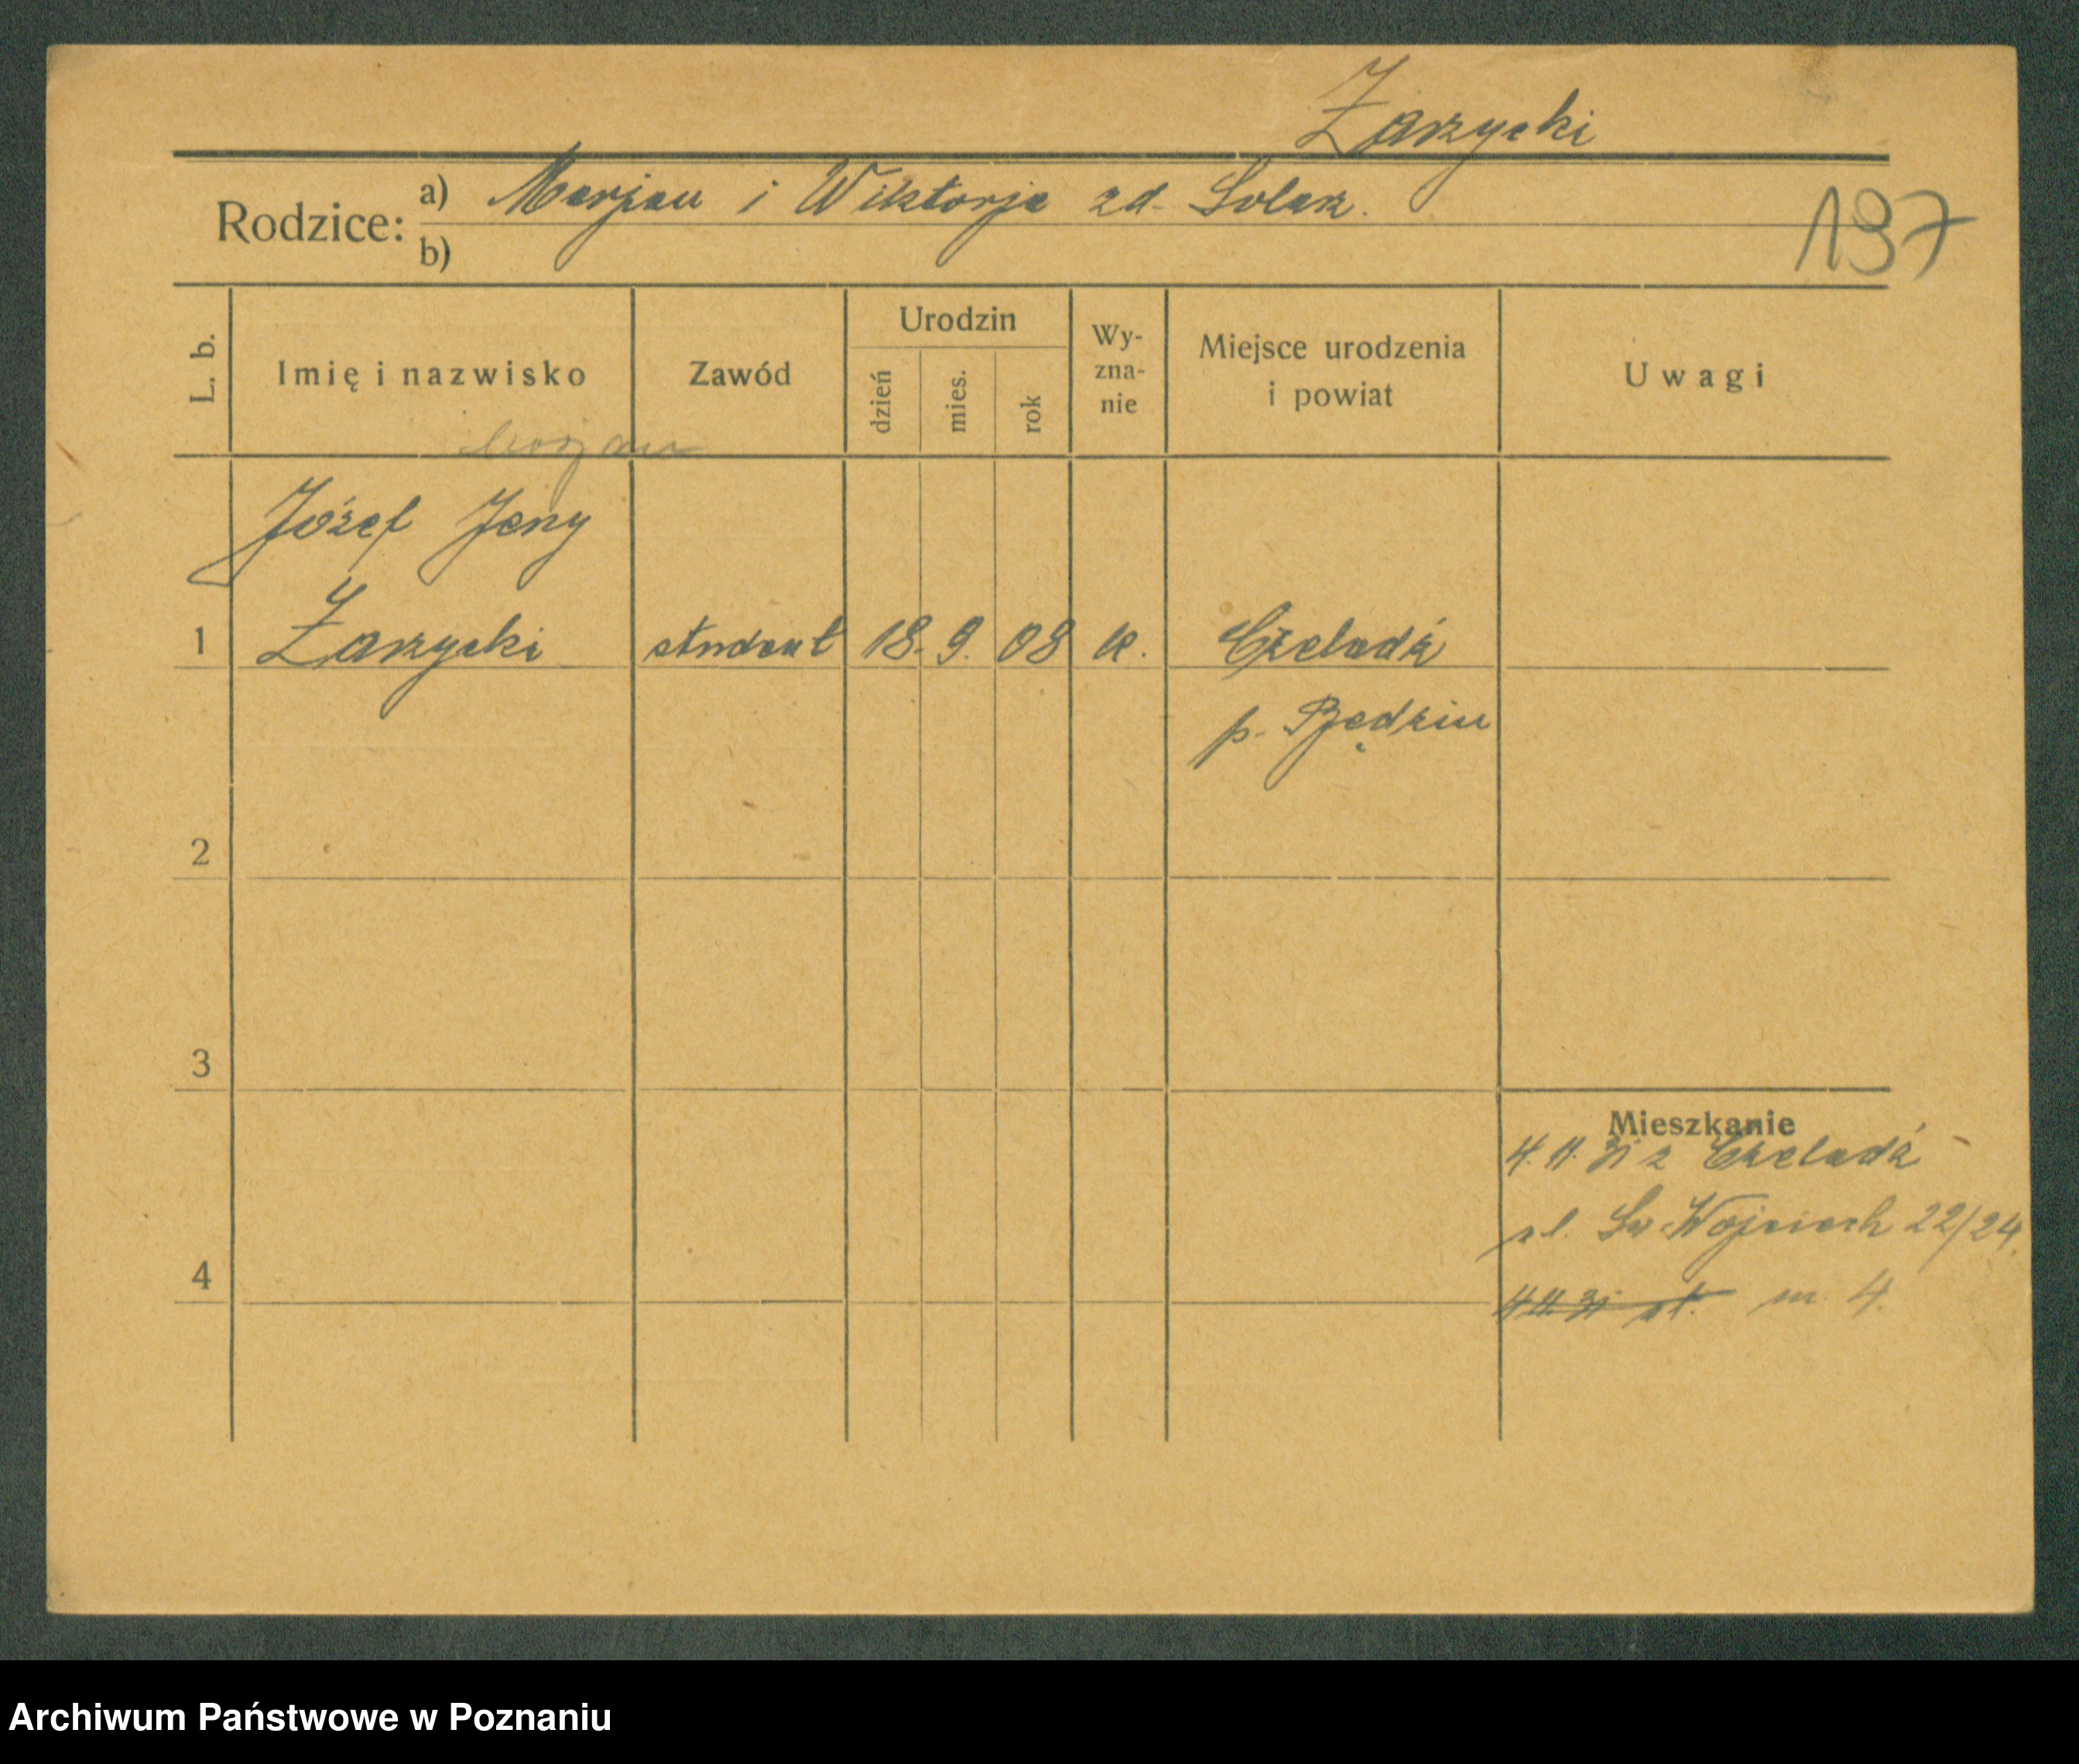 Zarzycki
Rodzice: a) Marjan i Wiktorja zd. Solarz.
b)
197
L. b. Imię i nazwisko Zawód Urodzin dzień mies. rok Wy-zna-nie Miejsce urodzenia i powiat Uwagi
Józef Jerzy
1 Zarzycki student 18. 9. 08 k. Czeladź
p. Będzin
2
3
Mieszkanie
4. 11. 31 z Czeladź
pl. Św Wojciech 22/24.
4
4.11.31 pl. m. 4.
Archiwum Państwowe w Poznaniu